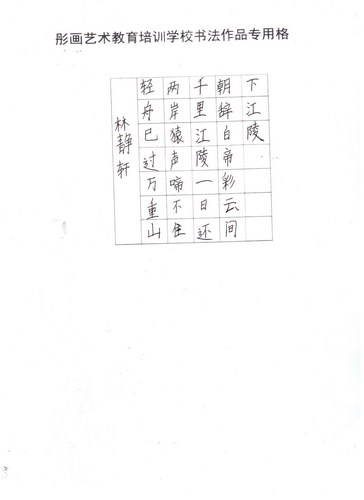 彤画艺术教育培训学校书法作品专用格
下江陵
朝辞白帝彩云间
千里江陵一日还
两岸猿声啼不住
轻舟已过万重山
林静轩